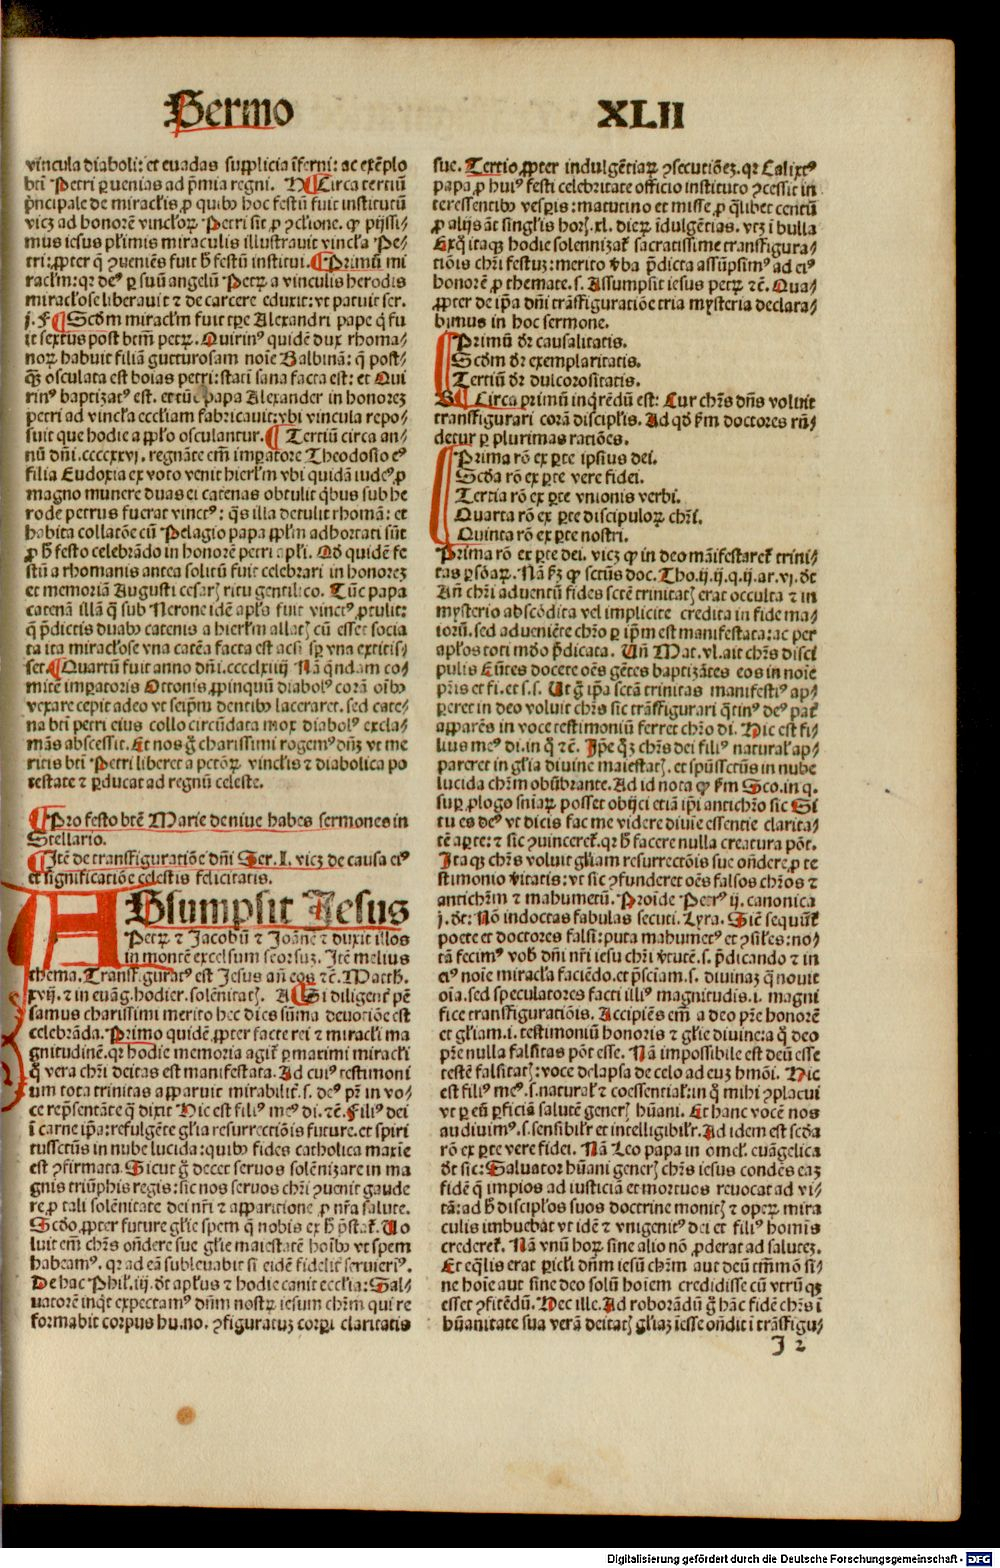 Sermo XLII
vincula diaboli: et euadas supplicia īferni: ac exēplo
bti Petri ꝑuenias ad p̄mia regni. H ¶ Circa tertiū
p̄ncipale de miraclis ꝓ quibꝰ hoc festū fuit institutū
vicꝫ ad honorē vinclorꝝ Petri sit ꝓ ꝯclione. ꝙ pijssi⸗
mus iesus plimis miraculis illustrauit vincla Pe⸗
tri: ꝓpter q̄ ꝯueniēs fuit h̄ festū institui. ¶ Primū mi
raclm: qꝛ deꝰ ꝑ suū angelū Petrꝝ a vinculis herodis
miraclose liberauit ⁊ de carcere eduxit: vt patuit ser.
j. F ¶ Scdm miraclm fuit tꝑe Alexandri pape q̄ fu
it sextus post btm̄ petrꝝ. Quirinꝰ quidē dux rhoma⸗
norꝝ habuit filiā gutturosam noīe Balbinā: q̄ post⸗
qꝫ osculata est boias petri: stati sana facta est: et Qui
rinꝰ baptizatꝰ est. et tūc papa Alexander in honorez
petri ad vincla eccliam fabricauit: vbi vincula repo⸗
suit que hodie a pplo osculantur. ¶ Tertiū circa an⸗
nū dn̄i. ccccxxvj. regnāte em̄ imꝑatore Theodosio eꝰ
filia Eudoxia ex voto venit hierlm vbi quidā iudeꝰ ꝓ
magno munere duas ei catenas obtulit q̄bus sub he
rode petrus fuerat vinctꝰ: q̄s illa detulit rhomā: et
habita collatōe cū Pelagio papa pplm adhortati sūt
ꝓ h̄ festo celebrādo in honorē petri apli. Qd̄ quidē fe
stū a rhomanis antea solitū fuit celebrari in honorez
et memoriā Augusti cesarꝭ ritu gentilico. Tūc papa
catenā illā q̄ sub Nerone idē apls fuit vinctꝰ ꝓtulit:
q̄ p̄dictis duabꝰ catenis a hierlm allatꝭ cū esset socia
ta ita miraclose vna catēa facta est acsi sp̄ vna extitis⸗
set. ¶ Quartū fuit anno dn̄i. cccclxiiij Nā q̄ndam co⸗
mitē imꝑatoris Ottonis ꝓpinquū diabolꝰ corā oībꝰ
vexare cepit adeo vt seipm̄ dentibꝰ laceraret. sed cate⸗
na bti petri eius collo circūdata mox diabolꝰ excla⸗
māns abscessit. Et nos g̊ charissimi rogemꝰ dn̄ꝫ vt me
ritis bti Petri liberet a pctōꝝ vinclis ⁊ diabolica po
testate ⁊ ꝑducat ad regnū celeste.
¶ Pro festo btē Marie de niue habes sermones in
Stellario.
¶ Itē de transfiguratiōe dn̄i Ser. I. vicꝫ de causa eiꝰ
et significatiōe celestis felicitatis.
ASsumpsit Jesus
Petrꝝ ⁊ Jacobū ⁊ Joānē ⁊ duxit illos
in montē excelsum seorsuꝫ. Itē melius
thema. Transfiguratꝰ est Jesus añ eos ⁊c. Matth.
xvij. ⁊ in euāg. hodier. solēnitatꝭ. A ¶ Si diligenť pē
samus charissimi merito hec dies sūma deuotiōe est
celebrāda. Primo quidē ꝓpter facte rei ⁊ miracli ma
gnitudinē. qꝛ hodie memoria agiť ꝑmaximi miracli
q̄ vera chr̄i deitas est manifestata. Ad cuiꝰ testimoni
um tota trinitas apparuit mirabiliť. s. deꝰ pr̄ in vo⸗
ce rep̄sentāte q̄ dixit Hic est filiꝰ meꝰ di. ⁊c. Filiꝰ dei
ī carne ip̄a: refulgēte glia resurrectiōis future. et spiri
tussctūs in nube lucida: quibꝰ fides catholica maxīe
est ꝯfirmata. Sicut g̊ decet seruos solēnizare in ma
gnis triūphis regis: sic nos seruos chr̄i ꝯuenit gaude
re ꝓ tali solēnitate dei nr̄i ⁊ apparitione ꝓ nr̄a salute.
Scdo ꝓpter future glie spem q̄ nobis ex h̄ p̄stať. Uo
luit em̄ chr̄s oñdere sue glie maiestatē hoībꝰ vt spem
habeamꝰ. qꝛ ad eā subleuabit si eidē fideliť seruierīꝰ.
De hac Phil. iij. dt̄ apl̄us ⁊ hodie canit ecclia: Sal⸗
uatorē inqt expectamꝰ dn̄m nostrꝝ iesum chr̄m qui re
formabit corpus hu. no. ꝯfiguratuꝫ corpi claritatis
sue. Tertio ꝓpter indulgētiarꝝ ꝯsecutiōeꝫ. qꝛ Calixtꝰ
papa ꝓ huiꝰ festi celebritate officio instituto ꝯcessit in
teressentibꝰ vesperis: matutino et misse ꝓ q̄libet centū
ꝓ alijs āt singlis horꝭ. xl. dierꝝ īdulgētias. vtꝫ i bulla
Exq̄ itaqꝫ hodie solennizaľ sacratissime transfigura⸗
tiōis chr̄i festuꝫ: merito v̄ba p̄dicta assūpsimꝰ ad eiꝰ
honorē ꝓ themate. s. Assumpsit iesus petrꝝ ⁊c. Qua⸗
ꝓpter de ip̄a dn̄i trāsfiguratiōe tria mysteria declara⸗
bimus in hoc sermone.
Primū dr̄ causalitatis.
Scdm dr̄ exemplaritatis.
Tertiū dr̄ dulcorositatis.
B ¶ Circa primū inq̄rēdū est: Cur chr̄s dn̄s voluit
transfigurari corā discipľis. Ad qd̄ ẜm doctores rn̄⸗
detur ꝑ plurimas ratiōes.
Prima rō ex ꝑte ipsius dei.
Scda rō ex ꝑte vere fidei.
Tertia rō ex ꝑte vnionis verbi.
Quarta rō ex ꝑte discipulorꝝ chr̄i.
Quinta rō ex ꝑte nostri.
Prima rō ex ꝑte dei. vicꝫ ꝙ in deo māifestareť trini⸗
tas ꝑsōaꝝ. Nā ẜꝫ ꝙ sctūs doc. Tho. ij. ij. q. ij. ar. vj. dt̄
Añ chr̄i aduentū fides sctē trinitatꝭ erat occulta ⁊ in
mysterio abscōdita vel implicite credita in fide ma⸗
iorū. sed adueniēte chr̄o ꝑ ip̄m est manifestata: ac per
apľos toti mūdo p̄dicata. Un̄ Mat. vl. ait chr̄s disci
pulis Eūtes docete oēs gētes baptizātes eos in noīe
pr̄is et fi. et s. s. Ut g̊ ip̄a sctā trinitas manifestiꝰ ap⸗
pareret in deo voluit chr̄s sic trāsfigurari q̄tinꝰ deꝰ paľ
apparēs in voce testimoniū ferret chr̄o di. Hic est fi⸗
lius meꝰ di. in q̄ ⁊c. Ipe qꝫ chr̄s dei filiꝰ natural ap⸗
pareret in glia diuine maiestatꝭ. et spūssctūs in nube
lucida chr̄m obūbrante. Ad id nota ꝙ ẜm Sco. in q.
suꝑ ꝓlogo sniarꝝ posset obijci etiā ip̄i antichr̄o sic Si
tu es deꝰ vt dicis fac me videre diuie essentie clarita⸗
tē aꝑte: ⁊ sic ꝯuincereť. qꝛ h̄ facere nulla creatura pōt.
Itaqꝫ chr̄s voluit gliam resurrectōis sue oñdere ꝓ te
stimonio v̄itatis: vt sic ꝯfunderet oēs falsos chr̄os ⁊
antichr̄m ⁊ mahumetū. Proīde Petrꝰ ij. canonica
j. dt̄: Nō indoctas fabulas secuti. Lyra. Sicū sequūť
poete et doctores falsi: puta mahumetꝰ et ꝯsiľes: no⸗
tā fecimꝰ vob̄ dn̄i nr̄i iesu chr̄i v̄tutē. s. p̄dicando ⁊ in
eiꝰ noīe miracla faciēdo. et p̄sciam. s. diuinaꝫ q̄ nouit
oīa. sed speculatores facti illiꝰ magnitudis. i. magni
fice transfiguratiōis. Accipiēs em̄ a deo pr̄e honorē
et gliam. i. testimoniū honoris ⁊ glie diuine: a q̄ deo
pr̄e nulla falsitas pōt esse. Nā impossibile est deū esse
testē falsitatꝭ: voce delapsa de celo ad euꝫ hmōi. Hic
est filiꝰ meꝰ. s. naturaľ ⁊ coessentiaľ: in q̄ mihi ꝯplacui
vt ꝑ eū ꝑficiā salutē generꝭ hūani. Et hanc vocē nos
audiuimꝰ. s. sensibiľr et intelligibiľr. Ad idem est scda
rō ex ꝑte vere fidei. Nā Leo papa in omeľ. euāgelica
dt̄ sic: Saluator hūani generꝭ chr̄s iesus condēs eaꝫ
fidē q̄ impios ad iusticiā et mortuos reuocat ad vi⸗
tā: ad h̄ disciplos suos doctrine monitꝭ ⁊ operꝝ mira
culis imbuebat vt idē ⁊ vnigenitꝰ dei et filiꝰ homīs
credereť. Nā vnū horꝝ sine alio nō ꝓderat ad salutez.
Et eq̄lis erat pericľi dn̄m iesū chr̄m aut deū tm̄mō si⸗
ne hoīe aut sine deo solū hoīem credidisse cū vtrūqꝫ
esset ꝯfitēdū. Hec ille. Ad roborādū g̊ hāc fidē chr̄s ī
hūanitate sua verā deitatꝭ gliaꝫ īesse oñdit ī trāsfigu⸗
J 2
Digitalisierung gefördert durch die Deutsche Forschungsgemeinschaft - DFG